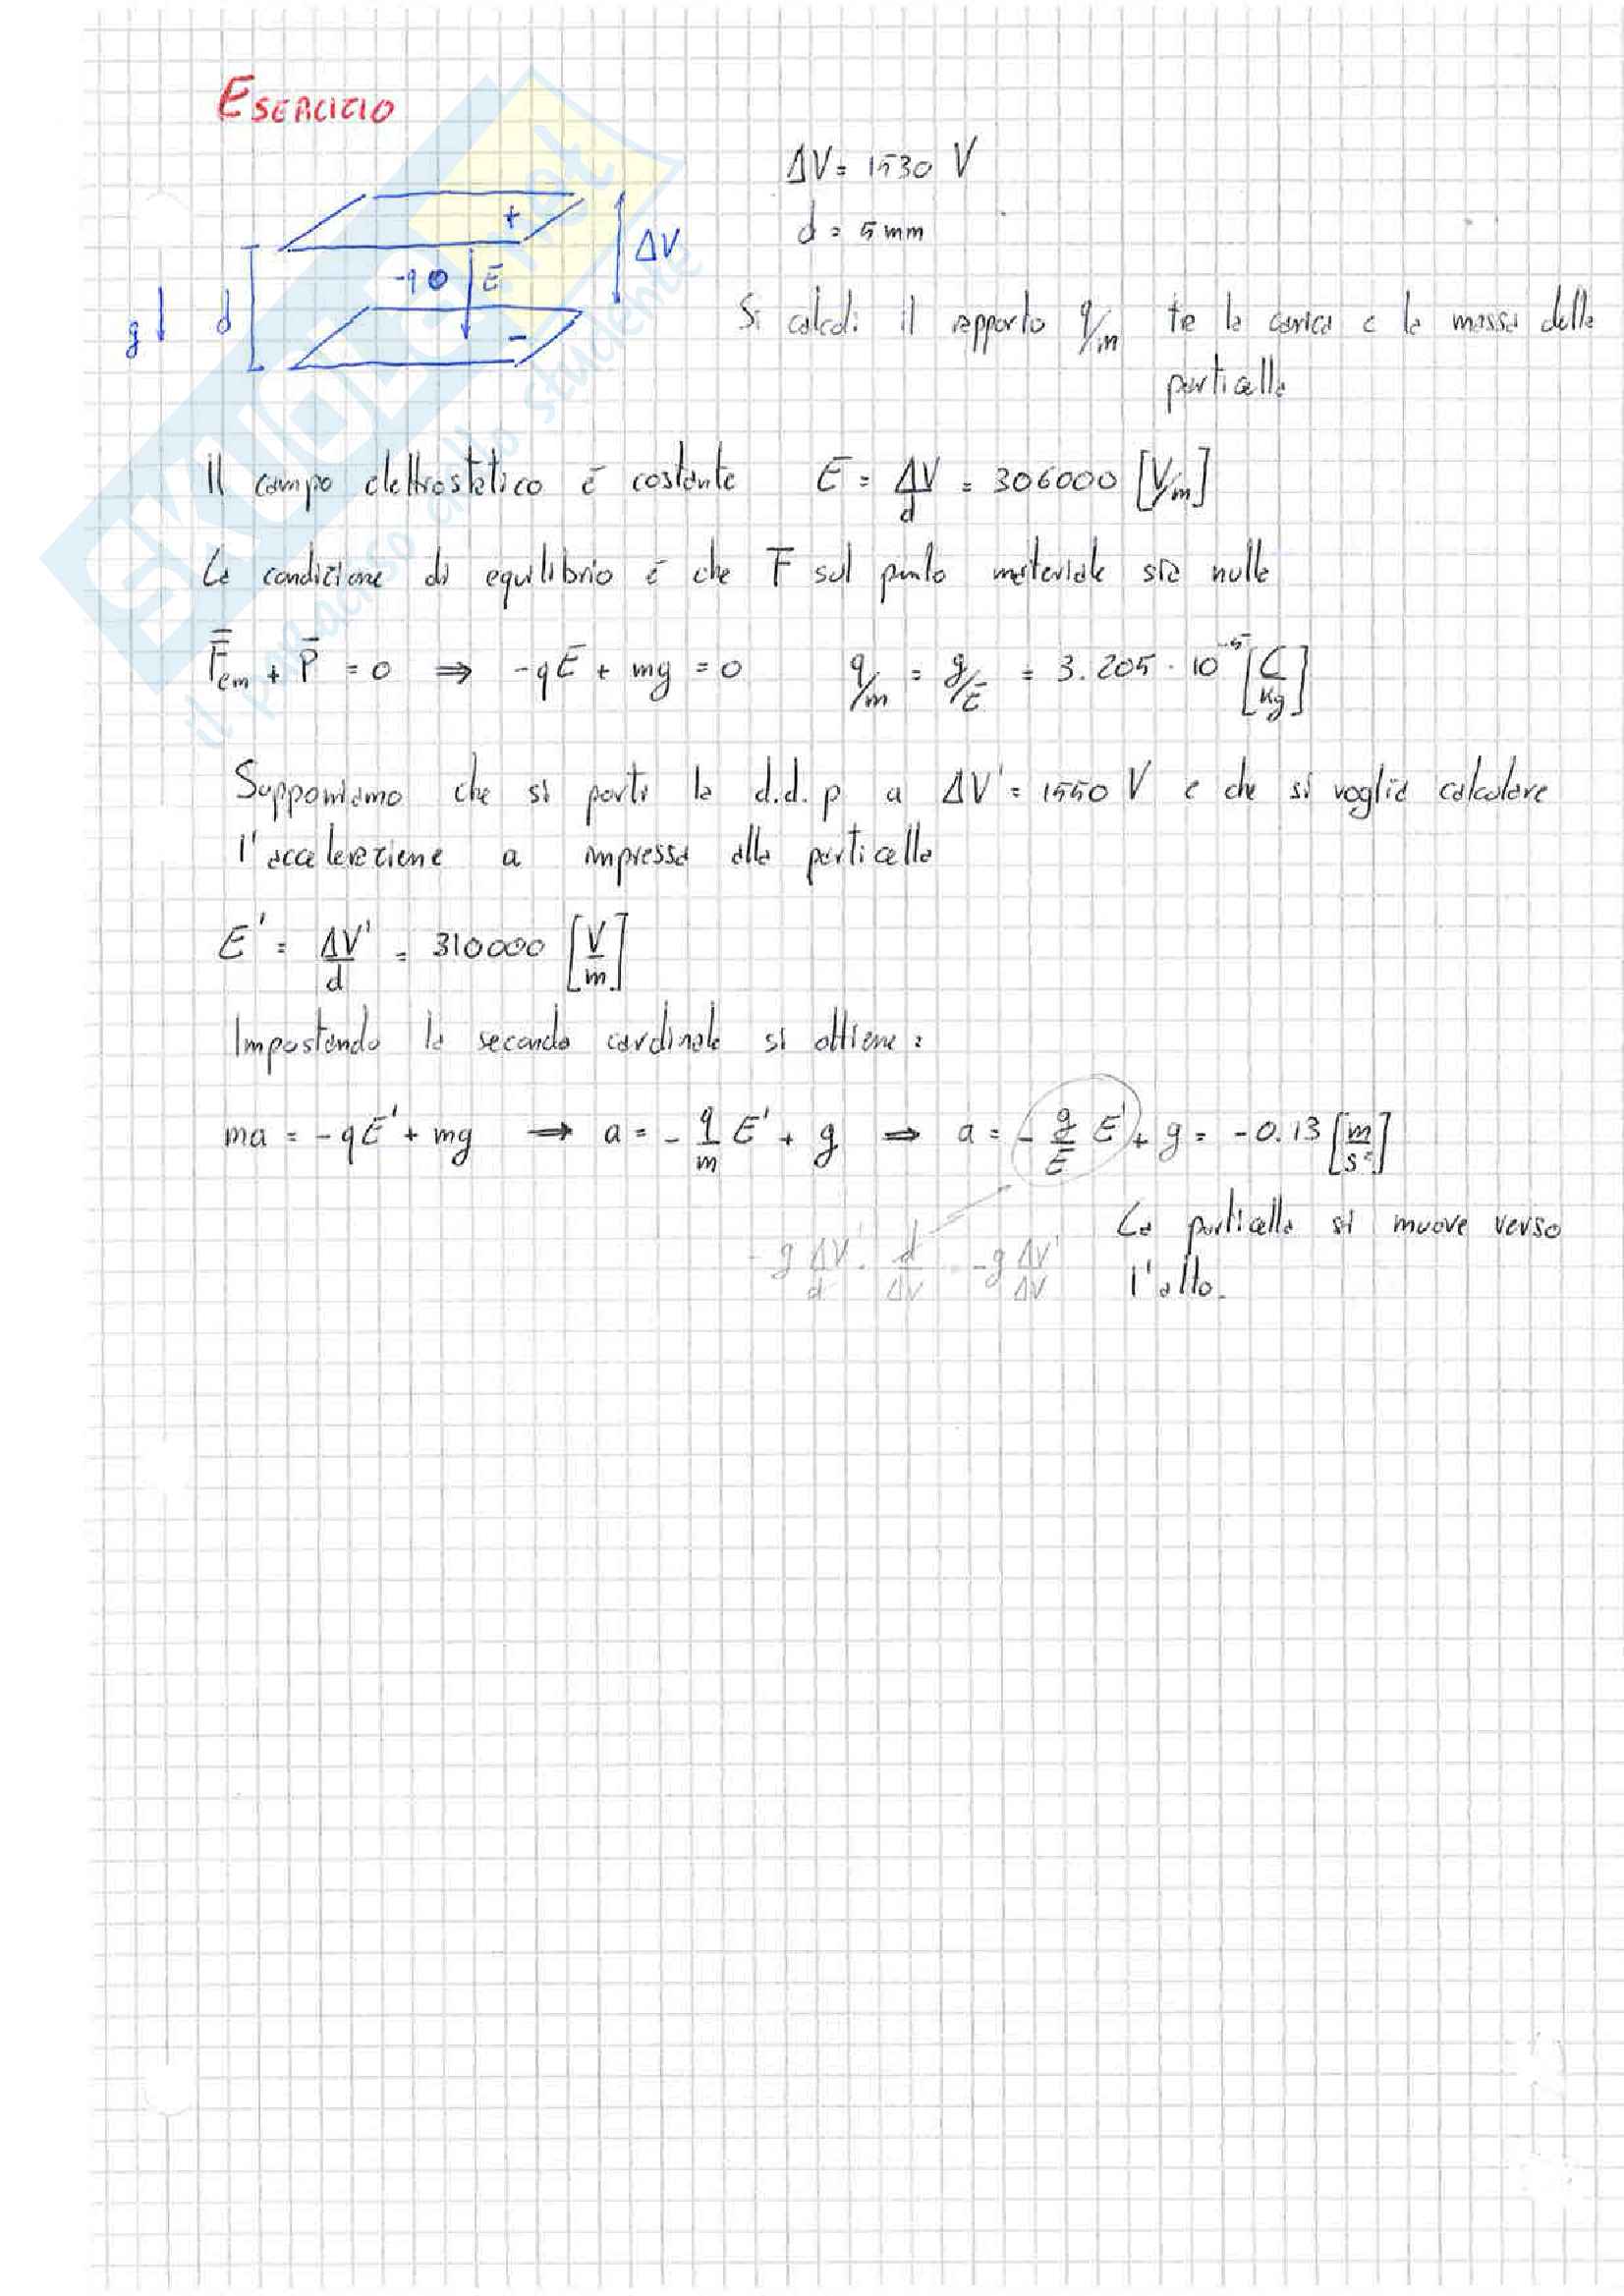 ESERCIZIO
ΔV = 1530 V
d = 5 mm
+
ΔV
-q
E
g
d
-
Si calcoli il rapporto q/m tra la carica e la massa della
particella
Il campo elettrostatico è costante E = ΔV/d = 306000 [V/m]
La condizione di equilibrio è che F sul punto materiale sia nulla
F̄em + P̄ = 0 ⇒ -qE + mg = 0 q/m = g/E = 3.205 · 10⁻⁵ [C/kg]
Supponiamo che si porti la d.d.p a ΔV' = 1550 V e che si voglia calcolare
l'accelerazione a impressa alla particella
E' = ΔV'/d = 310000 [V/m]
Impostando la seconda cardinale si ottiene:
ma = -qE' + mg ⇒ a = - q/m E' + g ⇒ a = - g/E E' + g = -0.13 [m/s²]
-g ΔV'/d · d/ΔV = -g ΔV'/ΔV
La particella si muove verso
l'alto.
SKUOLA.net
il paradiso dello studente